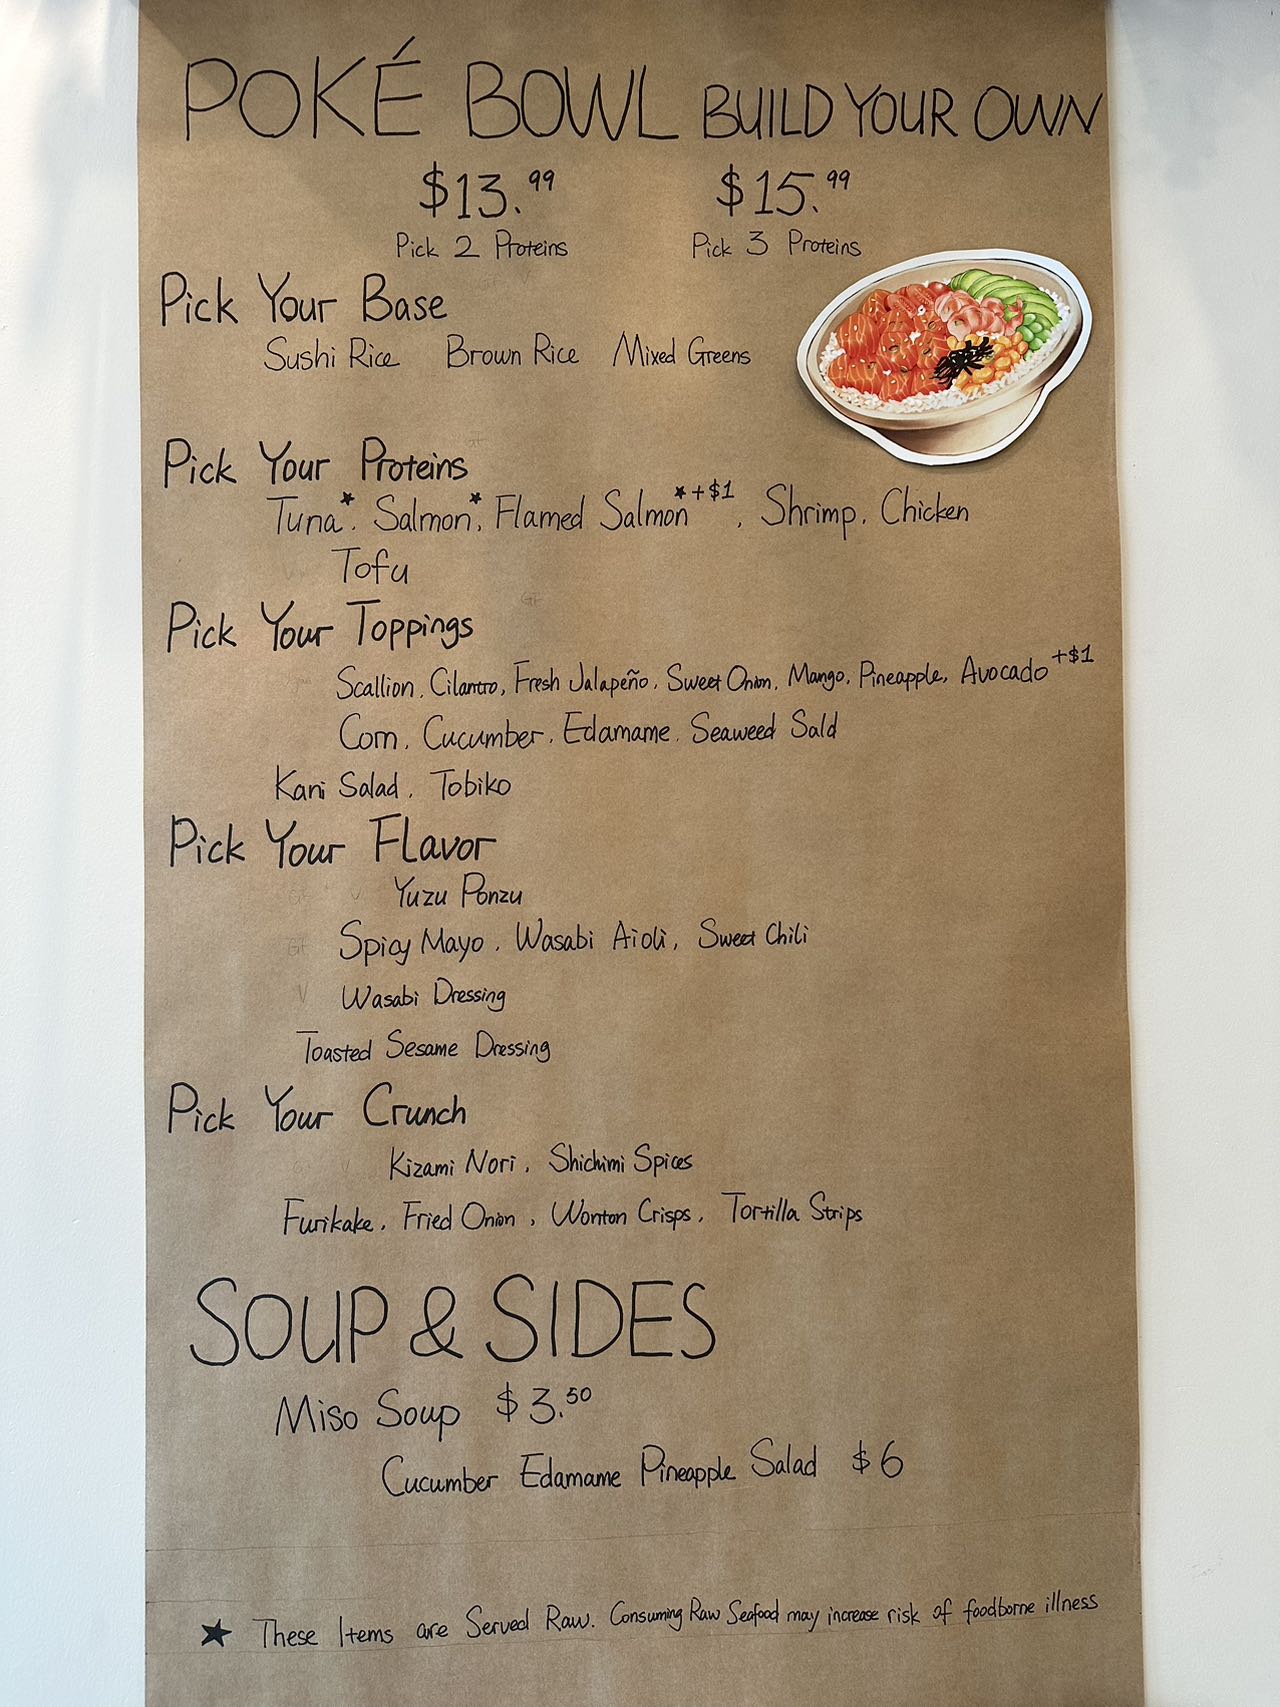 POKÉ BOWL BUILD YOUR OWN
$13.99 $15.99
Pick 2 Proteins Pick 3 Proteins
Pick Your Base
Sushi Rice Brown Rice Mixed Greens
Pick Your Proteins
Tuna★, Salmon★, Flamed Salmon★+$1, Shrimp, Chicken
Tofu
GF
Pick Your Toppings
Scallion, Cilantro, Fresh Jalapeño, Sweet Onion, Mango, Pineapple, Avocado+$1
Corn, Cucumber, Edamame, Seaweed Sald
Kani Salad, Tobiko
Pick Your Flavor
GF V Yuzu Ponzu
GF Spicy Mayo, Wasabi Aioli, Sweet Chili
V Wasabi Dressing
Toasted Sesame Dressing
Pick Your Crunch
Kizami Nori, Shichimi Spices
Furikake, Fried Onion, Wonton Crisps, Tortilla Strips
SOUP & SIDES
Miso Soup $3.50
Cucumber Edamame Pineapple Salad $6
★ These Items are Served Raw. Consuming Raw Seafood may increase risk of foodborne illness